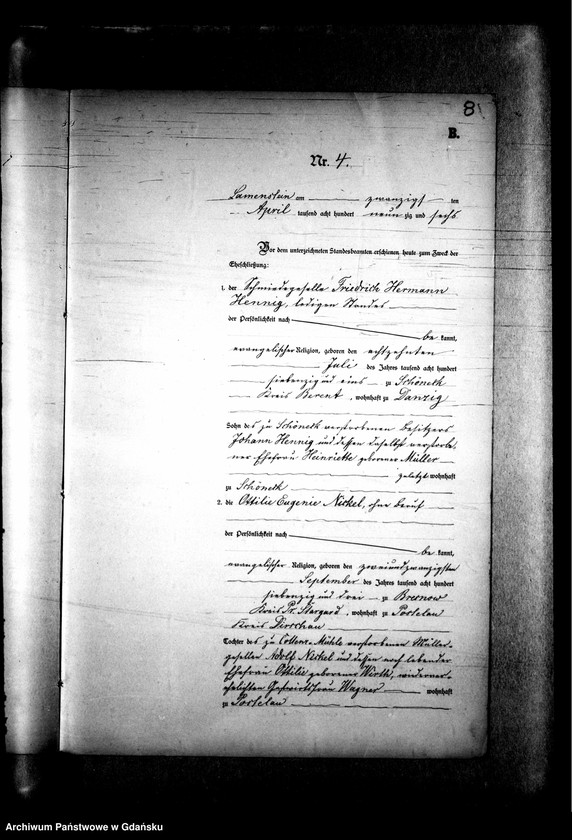 8
B.
Nr. 4.
Lamenstein am zwanzigsten
April tausend acht hundert neunzig und sechs
Vor dem unterzeichneten Standesbeamten erschienen heute zum Zweck der
Eheschließung:
1. der Schmiedegeselle Friedrich Hermann
Hennig, ledigen Standes
der Persönlichkeit nach
be kannt,
evangelischer Religion, geboren den achtzehnten
Juli des Jahres tausend acht hundert
siebenzig und eins zu Schöneck
Kreis Berent, wohnhaft zu Danzig
Sohn des zu Schöneck verstorbenen Besitzers
Johann Hennig und dessen daselbst verstorbe,
ner Ehefrau Heinriette geborener Müller
zuletzt wohnhaft
zu Schöneck
2. die Ottilie Eugenie Nickel, ohne Beruf
der Persönlichkeit nach
be kannt,
evangelischer Religion, geboren den zweiundzwanzigsten
September des Jahres tausend acht hundert
siebenzig und drei zu Bresnow
Kreis Pr. Stargard, wohnhaft zu Postelau
Kreis Dirschau
Tochter des zu Mühle verstorbenen Müller-
gesellen Adolf Nickel und dessen noch lebender
Ehefrau Ottilie geborener Wirth, wiederver-
ehelichten Gastwirtsfrau Wagner wohnhaft
zu Postelau
Archiwum Państwowe w Gdańsku